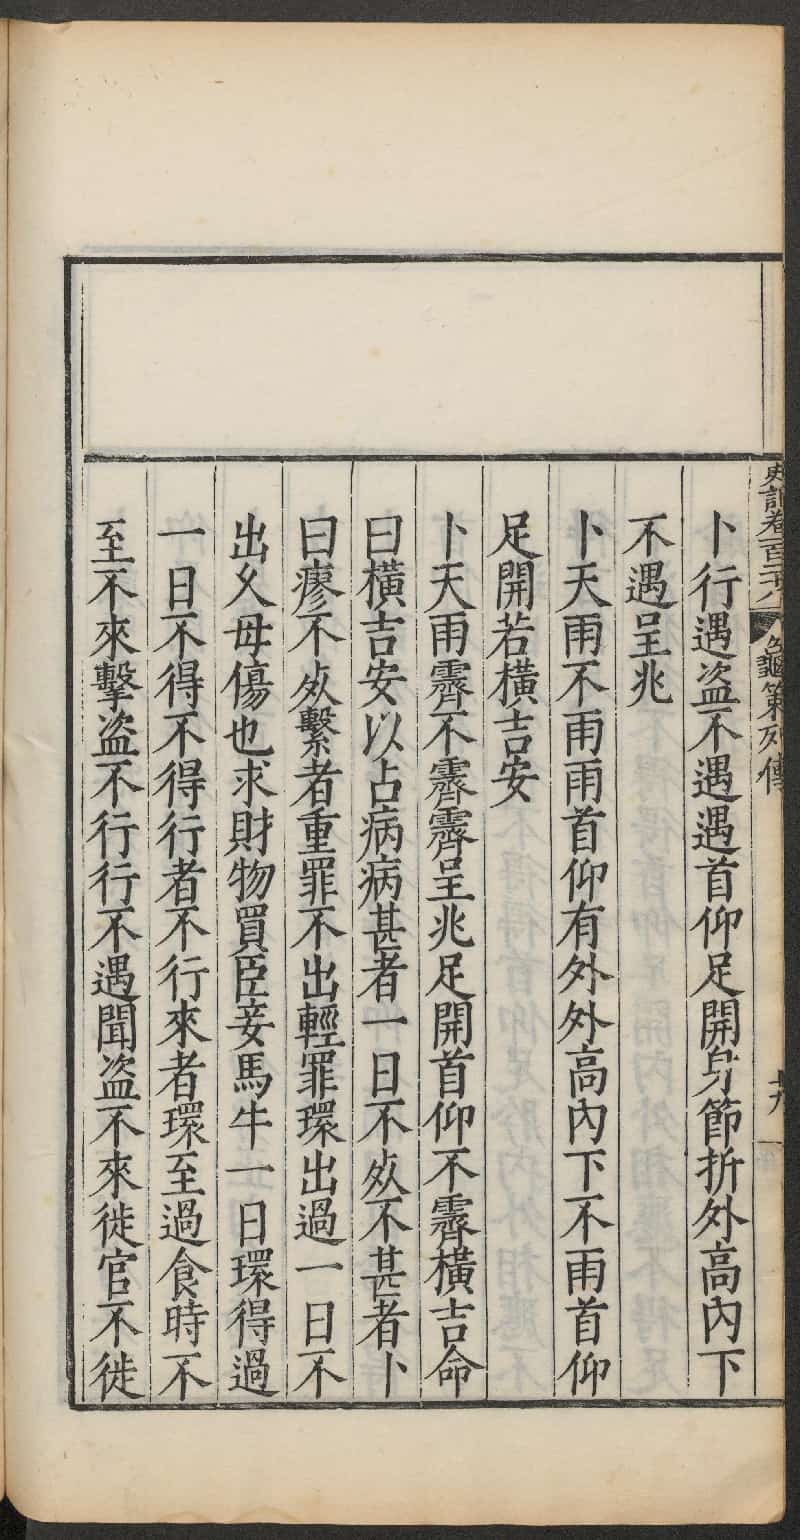 史記卷一百二十八 龜策列傳 十九
卜行遇盜不遇遇首仰足開身節折外高內下
不遇呈兆
卜天雨不雨雨首仰有外外高內下不雨首仰
足開若橫吉安
卜天雨霽不霽霽呈兆足開首仰不霽橫吉命
曰橫吉安以占病病甚者一日不𣦸不甚者卜
曰瘳不𣦸繫者重罪不出輕罪環出過一日不
出久毋傷也求財物買臣妾馬牛一日環得過
一日不得不得行者不行來者環至過食時不
至不來擊盜不行行不遇聞盜不來徙官不徙